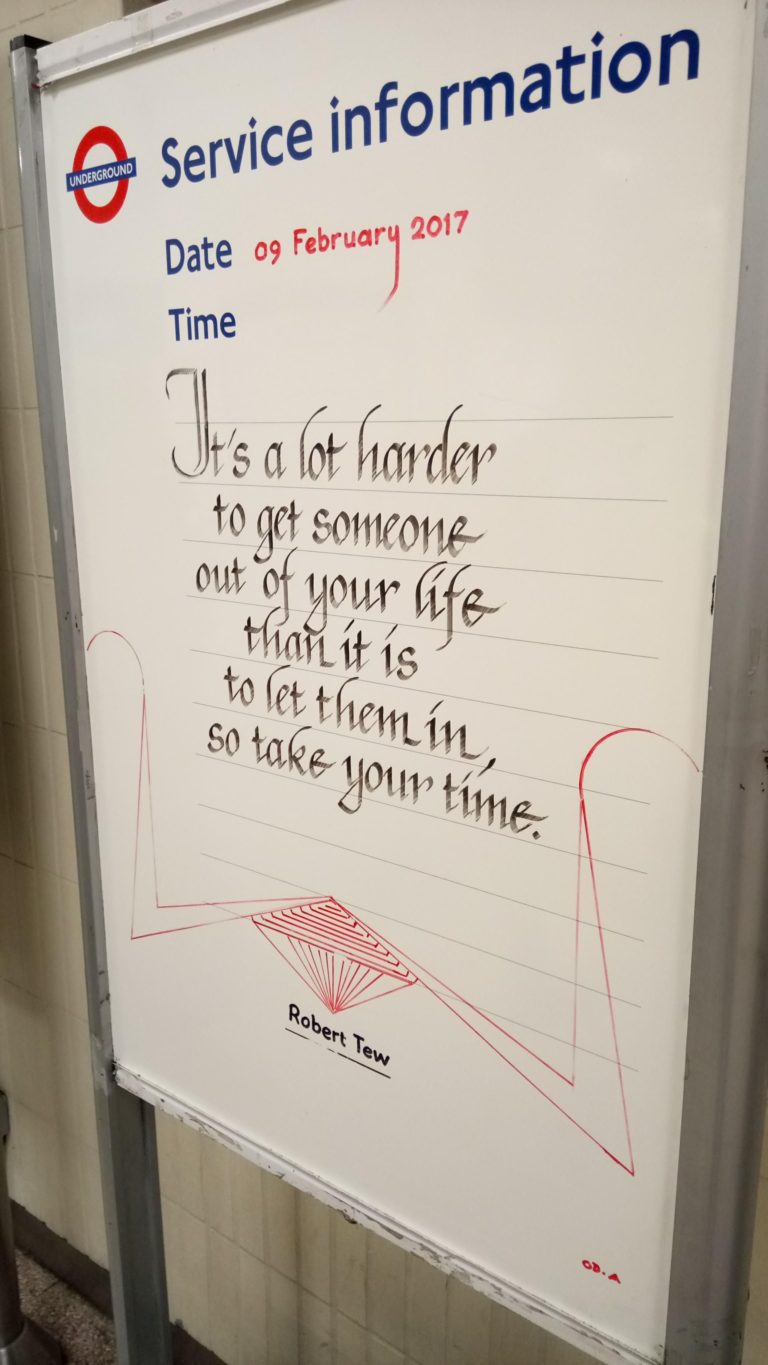 UNDERGROUND
Service information
Date 09 February 2017
Time
It's a lot harder
to get someone
out of your life
than it is
to let them in,
so take your time.
Robert Tew
OD.A